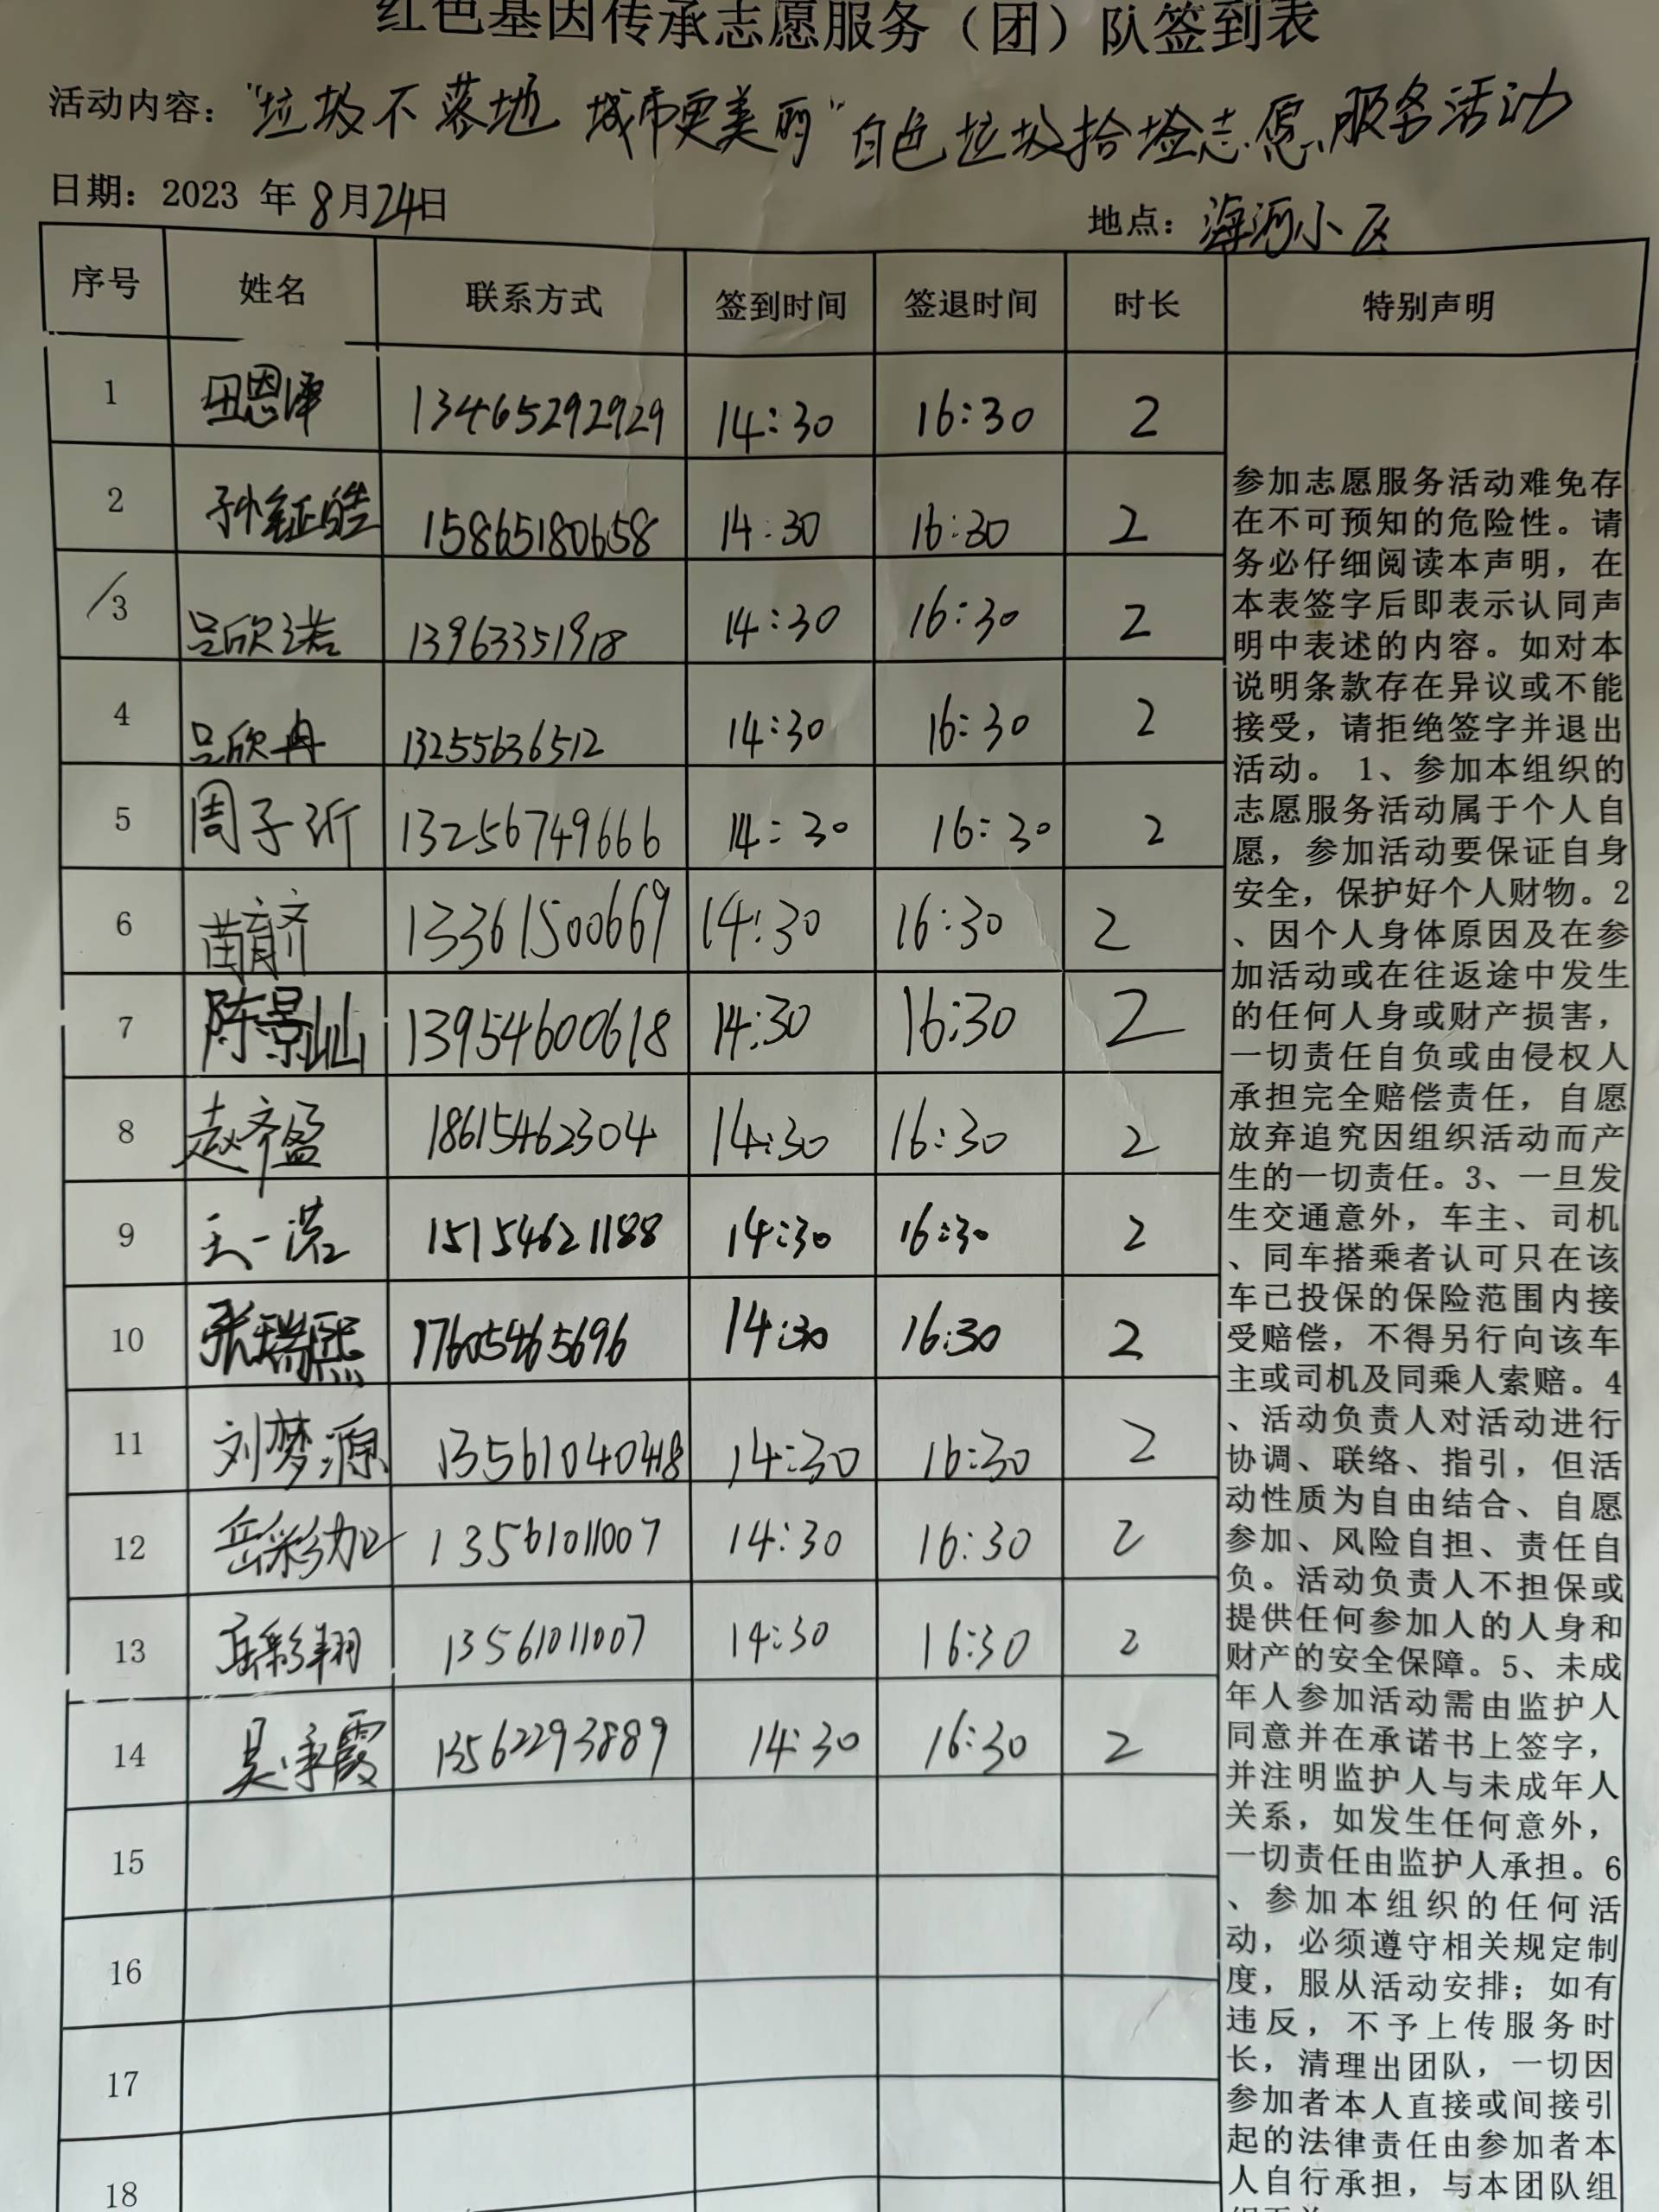 红色基因传承志愿服务（团）队签到表
活动内容："垃圾不落地 城市更美丽"白色垃圾捡拾志愿服务活动
日期：2023 年 8月24日
地点：海河小区
序号 姓名 联系方式 签到时间 签退时间 时长 特别声明
1 田恩泽 13465292929 14:30 16:30 2
2 孙钲皓 15865180658 14:30 16:30 2
3 吕欣诺 13963351918 14:30 16:30 2
4 吕欣冉 13255636512 14:30 16:30 2
5 周子沂 13256749666 14:30 16:30 2
6 苗育齐 13361500669 14:30 16:30 2
7 陈景屾 13954600618 14:30 16:30 2
8 赵齐盈 18615462304 14:30 16:30 2
9 王一诺 15154621188 14:30 16:30 2
10 张瑞熙 17605465696 14:30 16:30 2
11 刘梦源 13561040418 14:30 16:30 2
12 岳彩加 13561011007 14:30 16:30 2
13 岳彩翔 13561011007 14:30 16:30 2
14 吴承霞 13562293889 14:30 16:30 2
15
16
17
18
参加志愿服务活动难免存
在不可预知的危险性。请
务必仔细阅读本声明，在
本表签字后即表示认同声
明中表述的内容。如对本
说明条款存在异议或不能
接受，请拒绝签字并退出
活动。1、参加本组织的
志愿服务活动属于个人自
愿，参加活动要保证自身
安全，保护好个人财物。2
、因个人身体原因及在参
加活动或在往返途中发生
的任何人身或财产损害，
一切责任自负或由侵权人
承担完全赔偿责任，自愿
放弃追究因组织活动而产
生的一切责任。3、一旦发
生交通意外，车主、司机
、同车搭乘者认可只在该
车已投保的保险范围内接
受赔偿，不得另行向该车
主或司机及同乘人索赔。4
、活动负责人对活动进行
协调、联络、指引，但活
动性质为自由结合、自愿
参加、风险自担、责任自
负。活动负责人不担保或
提供任何参加人的人身和
财产的安全保障。5、未成
年人参加活动需由监护人
同意并在承诺书上签字，
并注明监护人与未成年人
关系，如发生任何意外，
一切责任由监护人承担。6
、参加本组织的任何活
动，必须遵守相关规定制
度，服从活动安排；如有
违反，不予上传服务时
长，清理出团队，一切因
参加者本人直接或间接引
起的法律责任由参加者本
人自行承担，与本团队组